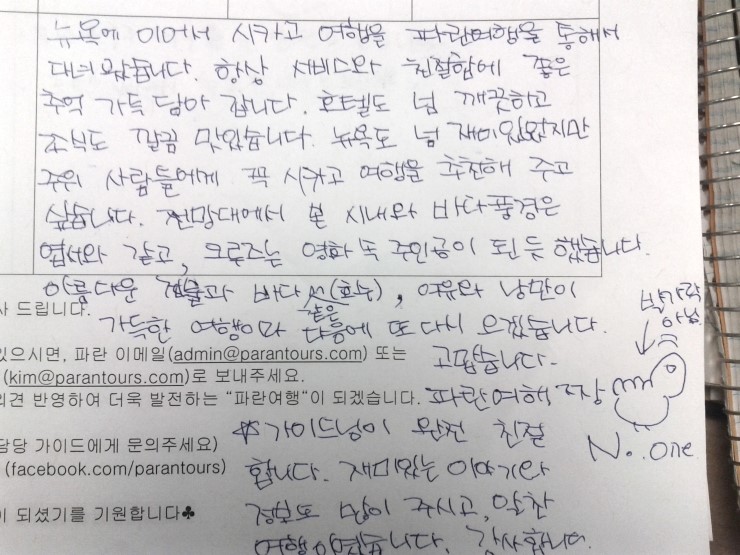 뉴욕에 이어서 시카고 여행을 파란여행을 통해서
대녀왔습니다. 항상 서비스와 친절함에 좋은
추억 가득 담아 갑니다. 호텔도 넘 깨끗하고
조식도 깔끔 맛있습니다. 뉴욕도 넘 재미있었지만
주위 사람들에게 꼭 시카고 여행을 추천해 주고
싶습니다. 전망대에서 본 시내와 바다풍경은
엽서와 같고, 크루즈는 영화 속 주인공이 된 듯 했습니다.
아름다운 건물과 바다 같은 (호수), 여유와 낭만이
가득한 여행이라 다음에 또 다시 오겠습니다.
고맙습니다.
파란여행 짱
박가락 아님
No. one
☆ 가이드님이 완전 친절
합니다. 재미있는 이야기와
정보도 많이 주시고, 알찬
여행이었습니다. 감사합니다.
사 드립니다.
있으시면, 파란 이메일(admin@parantours.com) 또는
(kim@parantours.com)로 보내주세요.
의견 반영하여 더욱 발전하는 “파란여행”이 되겠습니다.
담당 가이드에게 문의주세요)
(facebook.com/parantours)
이 되셨기를 기원합니다♣